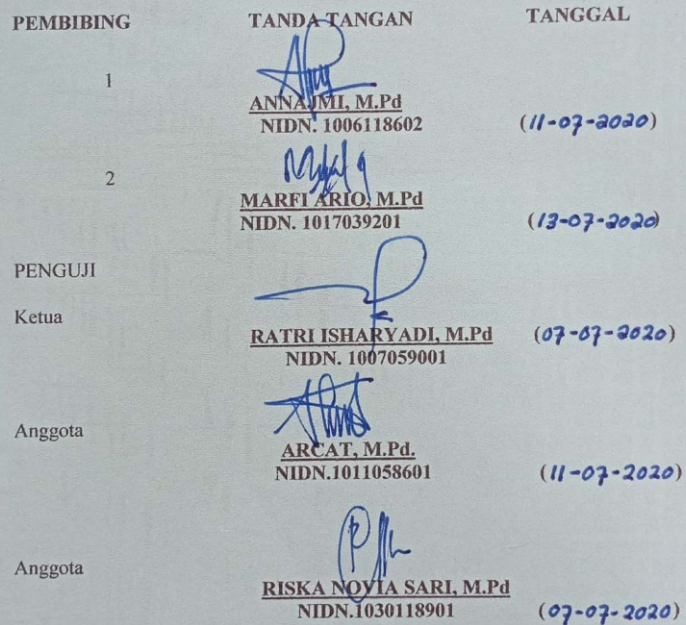 PEMBIBING TANDA TANGAN TANGGAL
1
ANNAJMI, M.Pd
NIDN. 1006118602 (11-07-2020)
2
MARFI ARIO, M.Pd
NIDN. 1017039201 (13-07-2020)
PENGUJI
Ketua
RATRI ISHARYADI, M.Pd (07-07-2020)
NIDN. 1007059001
Anggota
ARCAT, M.Pd.
NIDN.1011058601 (11-07-2020)
Anggota
RISKA NOVIA SARI, M.Pd
NIDN.1030118901 (07-07-2020)